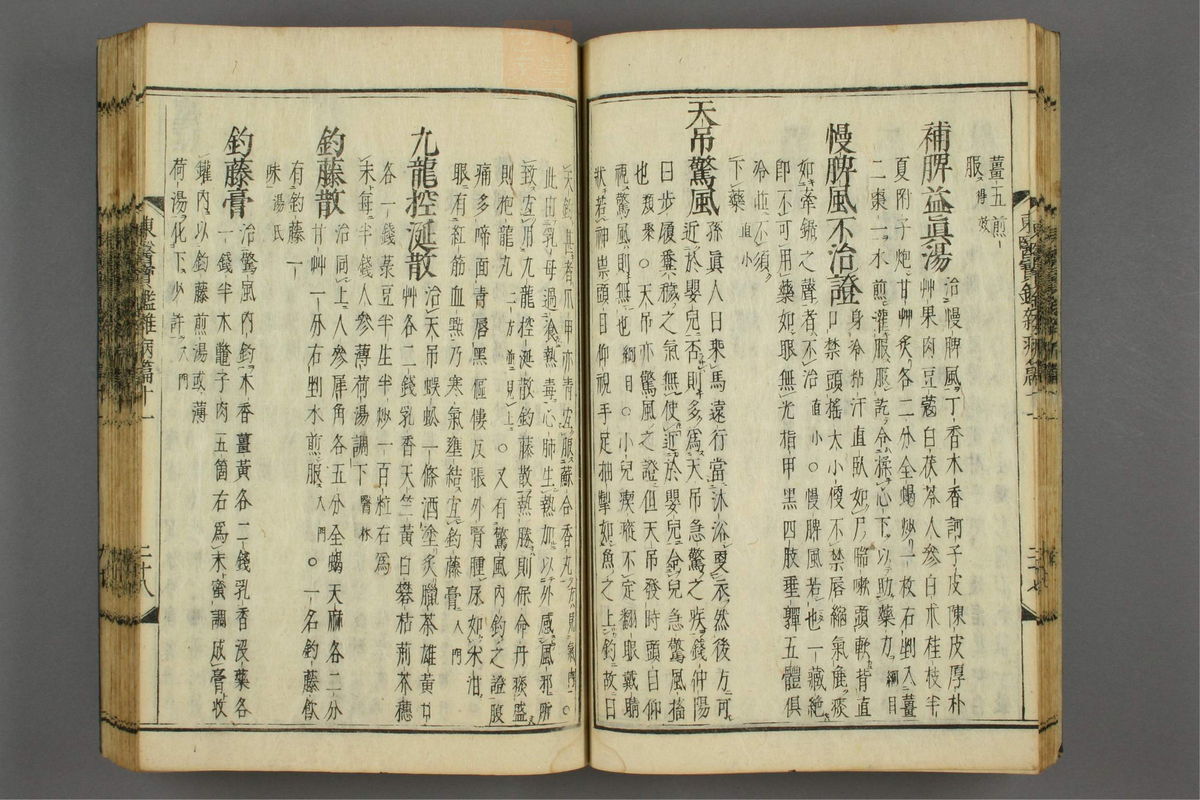 薑五煎
服 得效
補脾益眞湯 治慢脾風丁香木香訶子皮陳皮厚朴
艸果肉豆蔲白茯苓人參白朮桂枝半
夏附子炮甘艸炙各二分全蝎炒一枚右剉入薑
二棗一水煎灌服服訖令揉心下以助藥力 綱目
慢脾風不治證 身冷粘汗直臥如尸喘嗽頭軟背直
口噤頭搖大小便不禁唇縮氣麁痰
如牽鋸之聲者不治 直小○慢脾風若也一藏絶
卽不可用藥如眼無光指甲黑四肢垂嚲五體俱
冷並不須
下藥 直小
天吊驚風 孫眞人曰乘馬遠行當沐浴更衣然後方可
近於嬰兒否則多爲天吊急驚之疾錢仲陽
曰步履糞穢之氣無使近於嬰兒令兒急驚風搐
也 類聚○天吊亦驚風之證但天吊發時頭目仰
視驚風則無也 綱目○小兒瘈瘲不定翻眼戴睛
狀若神祟頭目仰視手足抽掣如魚之上鉤故曰
天釣甚者爪甲亦靑宜服蘇合香丸 ○
此由乳母過食熱毒心肺生熱加以外感風邪所
致宜用九龍控涎散鉤藤散熱勝則保命丹痰盛
則抱龍丸 二方並見上○又有驚風內釣之證腹
痛多啼面靑唇黑傴僂反張外腎腫尿如米泔
眼有紅筋血點乃寒氣壅結宜釣藤膏 入門
九龍控涎散 治天吊蜈蚣一條酒塗炙臘茶雄黃甘
艸各二錢乳香天竺黃白礬枯荊芥穗
各一錢菉豆半生半炒一百粒右爲
末每半錢人參薄荷湯調下 醫林
釣藤散 治同上人參犀角各五分全蝎天麻各二分
甘艸一分右剉水煎服 入門○一名釣藤飮
有釣藤一
味 湯氏
釣藤膏 治驚風內釣木香薑黃各二錢乳香沒藥各
一錢半木鼈子肉五箇右爲末蜜調成膏收
罐內以釣藤煎湯或薄
荷湯化下少許 入門
東醫寶鑑雜病篇十一
二十七
東醫寶鑑雜病篇十一
二十八